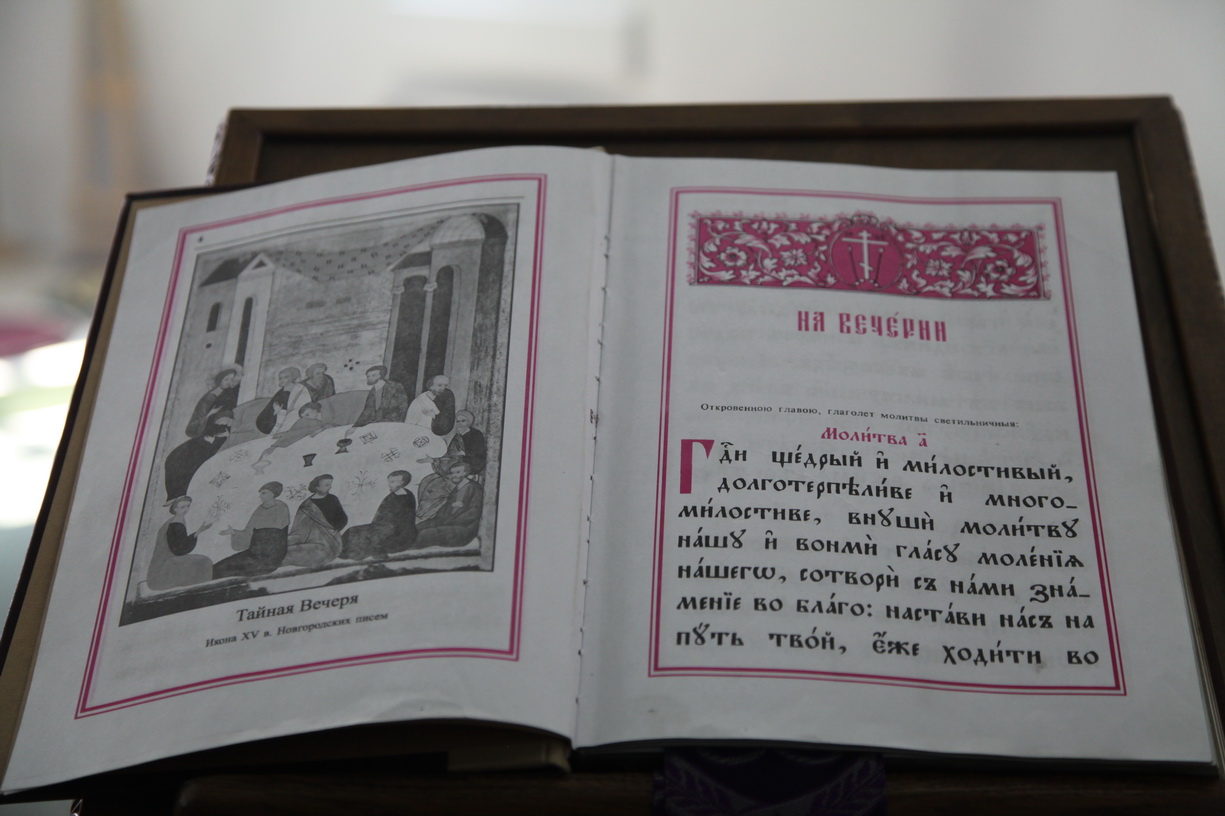 4
Тайная Вечеря
Икона XV в. Новгородских писем
НА ВЕЧЕ́РНИ
Откровенною главою, глаголет молитвы светильничныя:
Моли́тва а҃
Гдⷭ҇и ще́дрый и҆ ми́лостивый,
долготерпѣли́ве и҆ много-
ми́лостиве, внꙋшѝ моли́твꙋ
на́шꙋ и҆ вонмѝ гла́сꙋ моле́нїѧ
на́шегѡ, сотворѝ съ на́ми зна́-
менїе во бла́го: наста́ви на́съ на
пꙋ́ть тво́й, є҆́же ходи́ти во